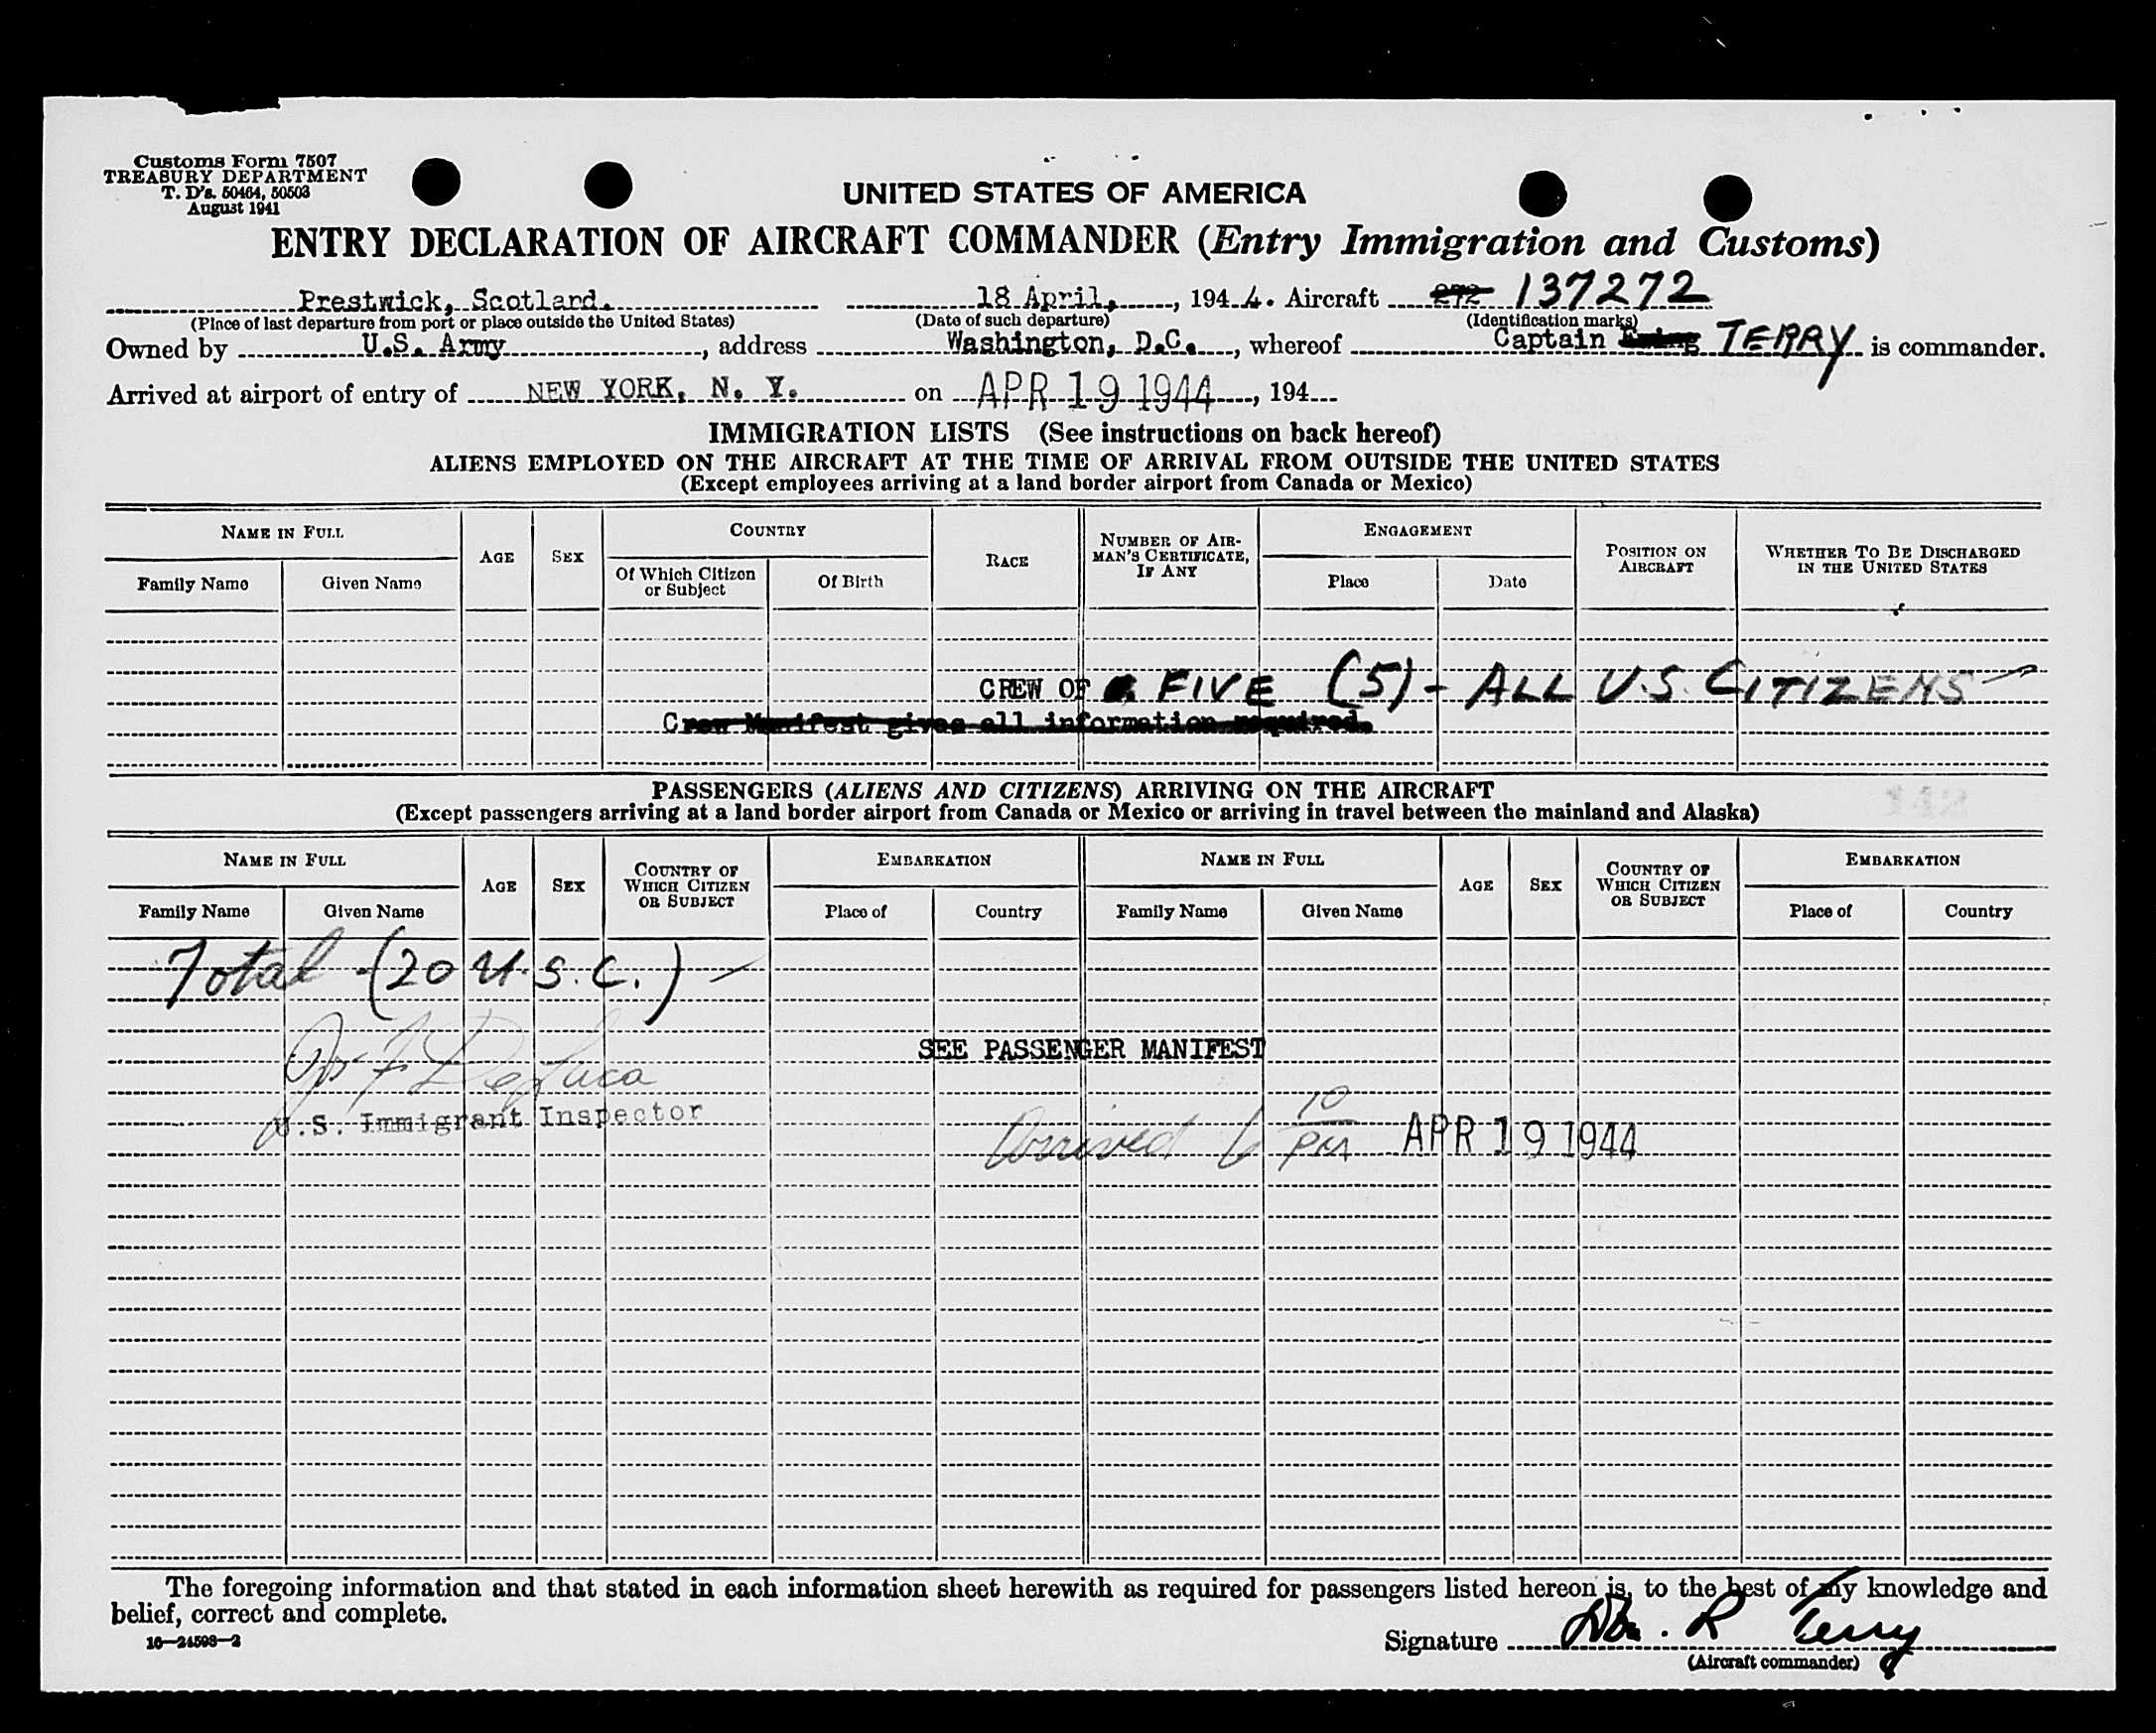 Customs Form 7507
TREASURY DEPARTMENT
T. D's. 50464, 50503
August 1941
UNITED STATES OF AMERICA
ENTRY DECLARATION OF AIRCRAFT COMMANDER (Entry Immigration and Customs)
Prestwick, Scotland. 18 April, , 194 4. Aircraft 272 137272
(Place of last departure from port or place outside the United States) (Date of such departure) (Identification marks)
Owned by U.S. Army , address Washington, D.C. , whereof Captain Ewing TERRY is commander.
Arrived at airport of entry of NEW YORK, N. Y. on APR 19 1944 , 194
IMMIGRATION LISTS (See instructions on back hereof)
ALIENS EMPLOYED ON THE AIRCRAFT AT THE TIME OF ARRIVAL FROM OUTSIDE THE UNITED STATES
(Except employees arriving at a land border airport from Canada or Mexico)
NAME IN FULL AGE SEX COUNTRY RACE NUMBER OF AIRMAN'S CERTIFICATE, IF ANY ENGAGEMENT POSITION ON AIRCRAFT WHETHER TO BE DISCHARGED IN THE UNITED STATES
Family Name Given Name Of Which Citizen or Subject Of Birth Place Date
CREW OF FIVE (5) - ALL U.S. CITIZENS
Crew Manifest gives all information required.
PASSENGERS (ALIENS AND CITIZENS) ARRIVING ON THE AIRCRAFT
(Except passengers arriving at a land border airport from Canada or Mexico or arriving in travel between the mainland and Alaska)
NAME IN FULL AGE SEX COUNTRY OF WHICH CITIZEN OR SUBJECT EMBARKATION NAME IN FULL AGE SEX COUNTRY OF WHICH CITIZEN OR SUBJECT EMBARKATION
Family Name Given Name Place of Country Family Name Given Name Place of Country
Total (20 U.S.C.)
SEE PASSENGER MANIFEST
DeLuca
U.S. Immigrant Inspector
Arrived 6 10 PM APR 19 1944
The foregoing information and that stated in each information sheet herewith as required for passengers listed hereon is, to the best of my knowledge and
belief, correct and complete.
16—24598-2
Signature Wm. R Terry
(Aircraft commander)